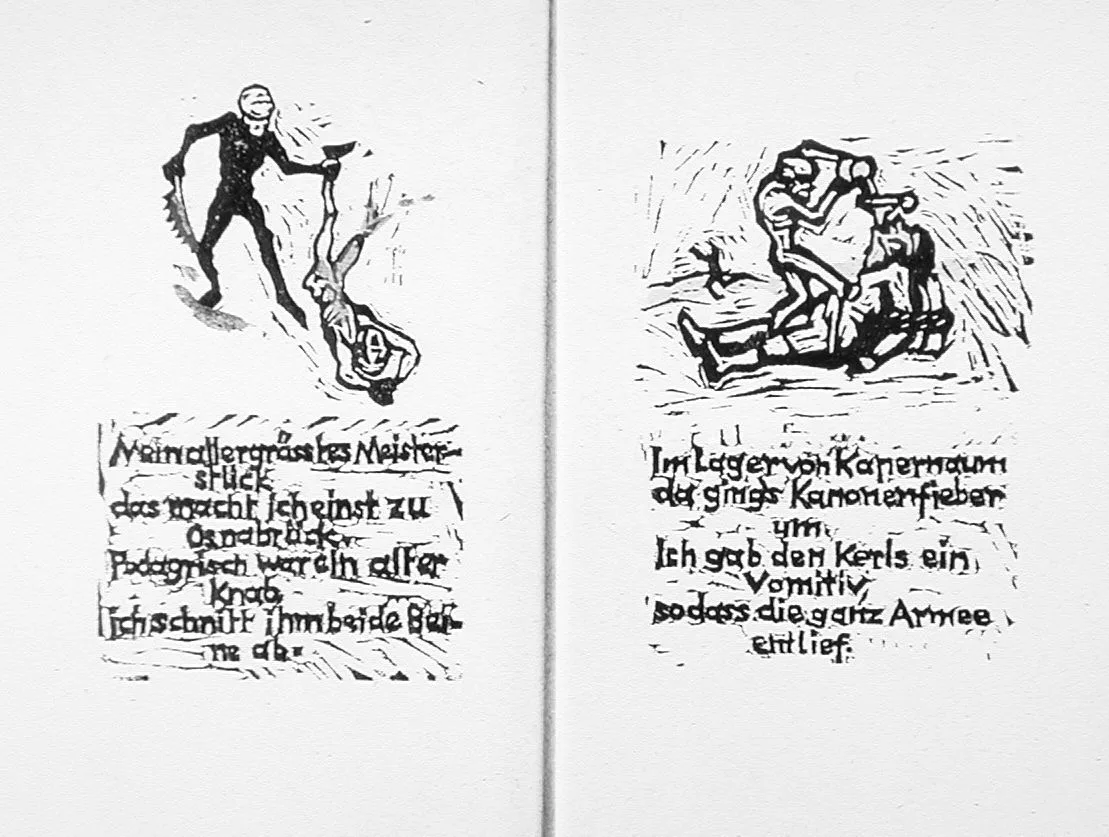 Mein allergrässtes Meister-
stück
das macht ich einst zu
Osnabrück.
Podagrisch war ein alter
Knab,
Ich schnitt ihm beide Bei-
ne ab.
Im Lager von Kapernaum
da ging's Kanonenfieber
um,
Ich gab den Kerls ein
Vomitiv,
sodass die ganz Armee
entlief.